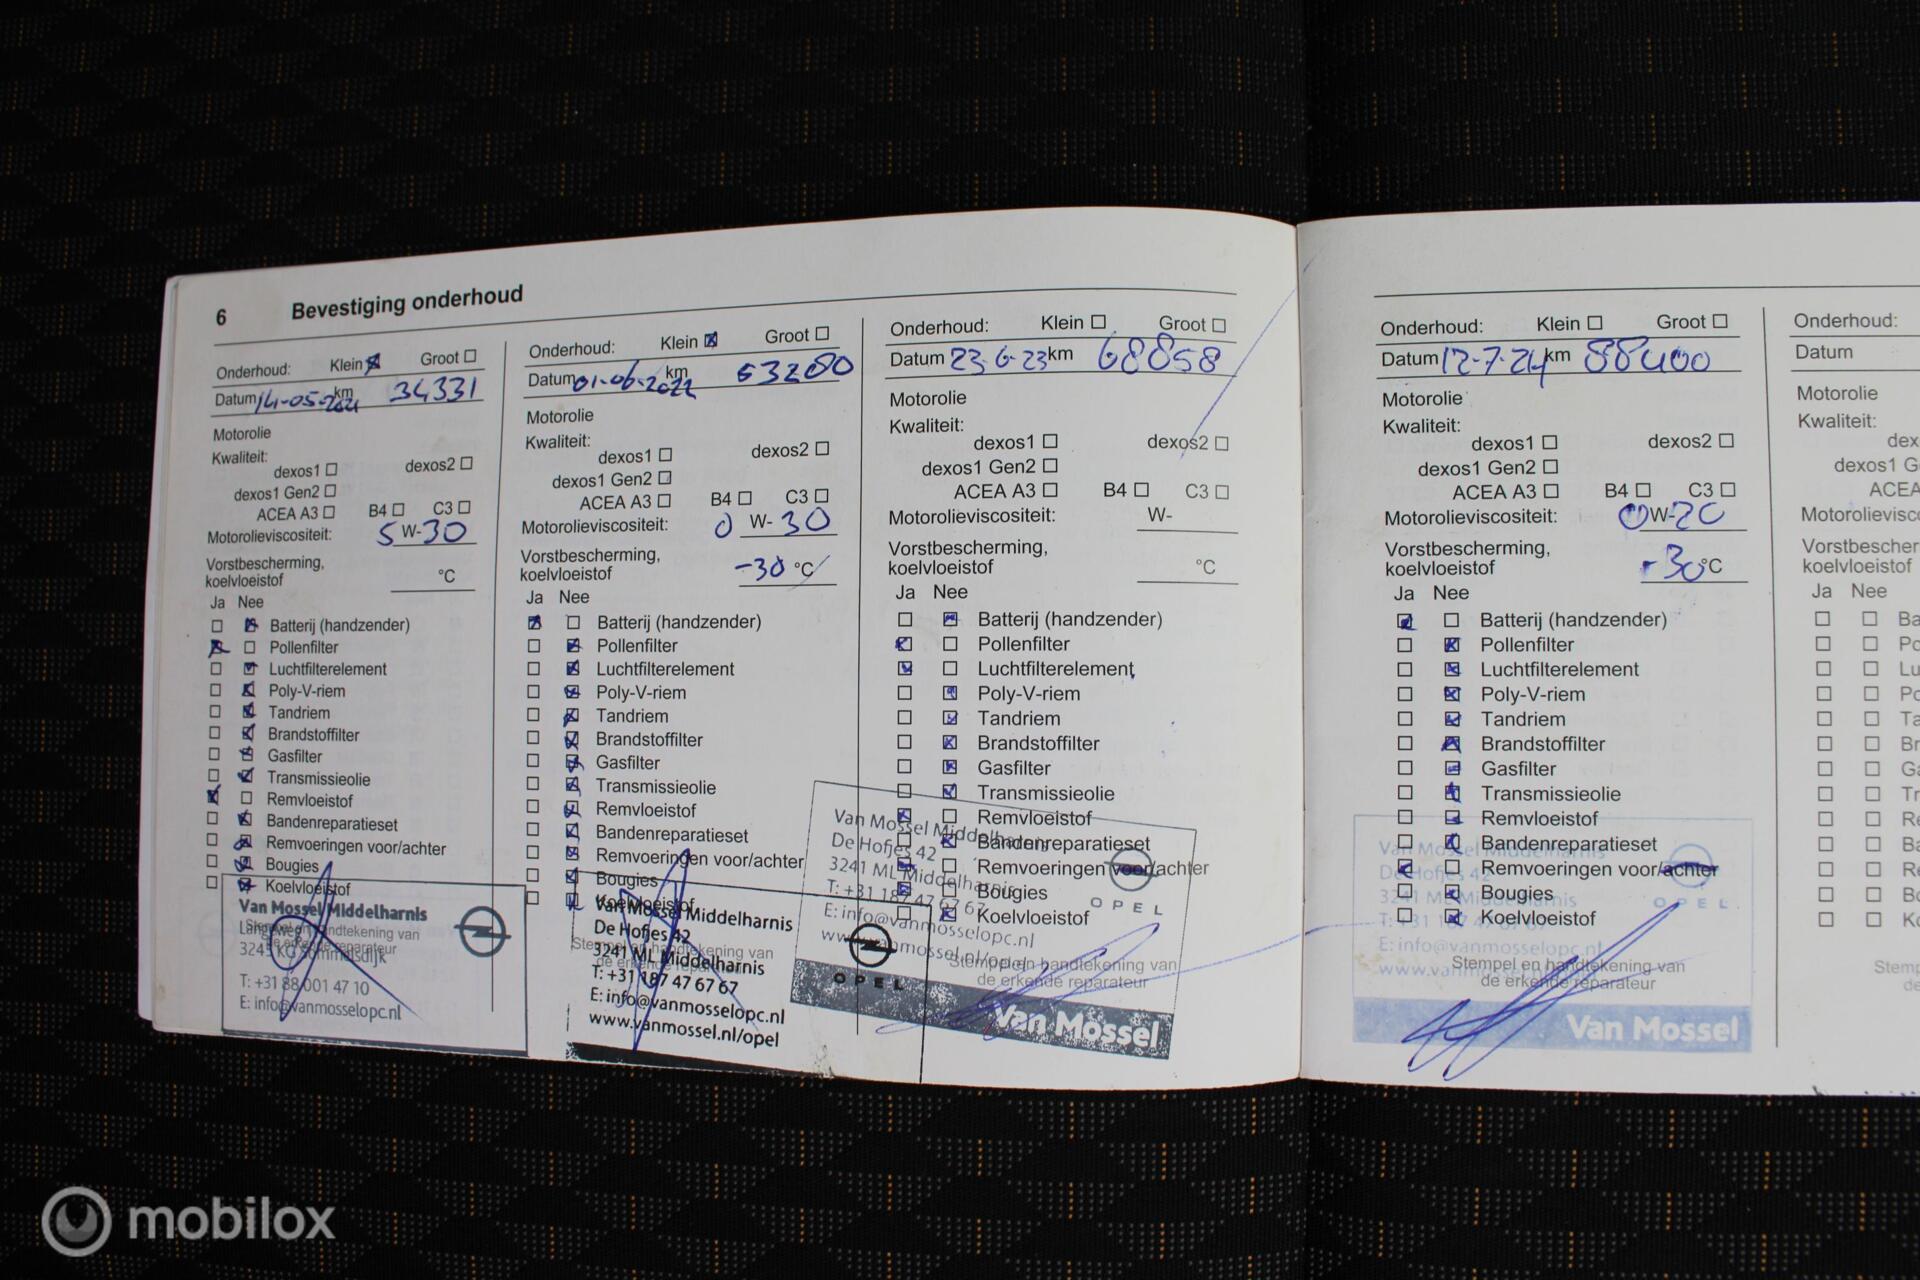 6 Bevestiging onderhoud
Onderhoud: Klein Groot
Datum 14-05-2021 km 34331
Motorolie
Kwaliteit:
dexos1 dexos2
dexos1 Gen2
ACEA A3 B4 C3
Motorolieviscositeit: 5 W-30
Vorstbescherming,
koelvloeistof °C
Ja Nee
Batterij (handzender)
Pollenfilter
Luchtfilterelement
Poly-V-riem
Tandriem
Brandstoffilter
Gasfilter
Transmissieolie
Remvloeistof
Bandenreparatieset
Remvoeringen voor/achter
Bougies
Koelvloeistof
Stempel en handtekening van
de erkende reparateur
Van Mossel Middelharnis
Langeweg
3245 KG Sommelsdijk
T: +31 88 001 47 10
E: info@vanmosselopc.nl
Onderhoud: Klein Groot
Datum 01-06-2022 km 53280
Motorolie
Kwaliteit:
dexos1 dexos2
dexos1 Gen2
ACEA A3 B4 C3
Motorolieviscositeit: 0 W-30
Vorstbescherming,
koelvloeistof -30 °C
Ja Nee
Batterij (handzender)
Pollenfilter
Luchtfilterelement
Poly-V-riem
Tandriem
Brandstoffilter
Gasfilter
Transmissieolie
Remvloeistof
Bandenreparatieset
Remvoeringen voor/achter
Bougies
Koelvloeistof
Stempel en handtekening van
de erkende reparateur
Van Mossel Middelharnis
De Hofjes 42
3241 ML Middelharnis
T: +31 187 47 67 67
E: info@vanmosselopc.nl
www.vanmossel.nl/opel
OPEL
Onderhoud: Klein Groot
Datum 23-6-23 km 68858
Motorolie
Kwaliteit:
dexos1 dexos2
dexos1 Gen2
ACEA A3 B4 C3
Motorolieviscositeit: W-
Vorstbescherming,
koelvloeistof °C
Ja Nee
Batterij (handzender)
Pollenfilter
Luchtfilterelement
Poly-V-riem
Tandriem
Brandstoffilter
Gasfilter
Transmissieolie
Remvloeistof
Bandenreparatieset
Remvoeringen voor/achter
Bougies
Koelvloeistof
Stempel en handtekening van
de erkende reparateur
Van Mossel Middelharnis
De Hofjes 42
3241 ML Middelharnis
T: +31 187 47 67 67
E: info@vanmosselopc.nl
www.vanmossel.nl/opel
OPEL
Van Mossel
Onderhoud: Klein Groot
Datum 12-7-24 km 88400
Motorolie
Kwaliteit:
dexos1 dexos2
dexos1 Gen2
ACEA A3 B4 C3
Motorolieviscositeit: 0 W-20
Vorstbescherming,
koelvloeistof -30 °C
Ja Nee
Batterij (handzender)
Pollenfilter
Luchtfilterelement
Poly-V-riem
Tandriem
Brandstoffilter
Gasfilter
Transmissieolie
Remvloeistof
Bandenreparatieset
Remvoeringen voor/achter
Bougies
Koelvloeistof
Stempel en handtekening van
de erkende reparateur
Van Mossel Middelharnis
De Hofjes 42
3241 ML Middelharnis
T: +31 187 47 67 67
E: info@vanmosselopc.nl
OPEL
Van Mossel
Onderhoud:
Datum
Motorolie
Kwaliteit:
dex
dexos1 G
ACEA
Motorolievisc
Vorstbescher
koelvloeistof
Ja Nee
Ba
Po
Lu
Po
Ta
Br
Ga
Tr
Re
Ba
Re
Bo
Ko
Stemp
de
mobilox